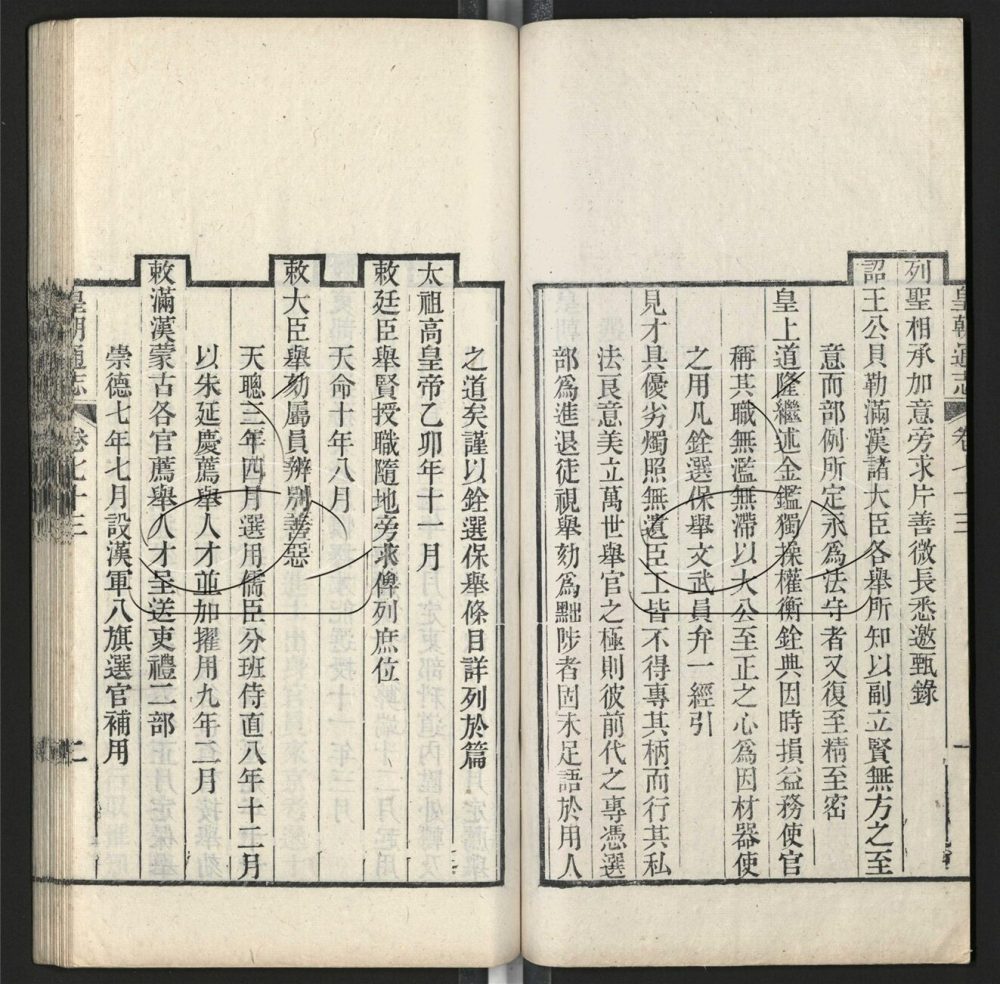 皇朝通志 卷七十三 一
列聖相承加意旁求片善微長悉邀甄錄
詔王公貝勒滿漢諸大臣各舉所知以副立賢無方之至
意而部例所定永爲法守者又復至精至密
皇上道隆繼述金鑑獨操權衡銓典因時損益務使官
稱其職無濫無滯以大公至正之心爲因材器使
之用凡銓選保舉文武員弁一經引
見才具優劣燭照無遺臣工皆不得專其柄而行其私
法良意美立萬世舉官之極則彼前代之專憑選
部爲進退徒視舉劾爲黜陟者固未足語於用人
之道矣謹以銓選保舉條目詳列於篇
太祖高皇帝乙卯年十一月
敕廷臣舉賢授職隨地旁求俾列庶位
天命十年八月
敕大臣舉劾屬員辨別善惡
天聰三年四月選用儒臣分班侍直八年十二月
以朱延慶薦舉人才並加擢用九年二月
敕滿漢蒙古各官薦舉人才呈送吏禮二部
崇德七年七月設漢軍八旗選官補用
皇朝通志 卷七十三 二